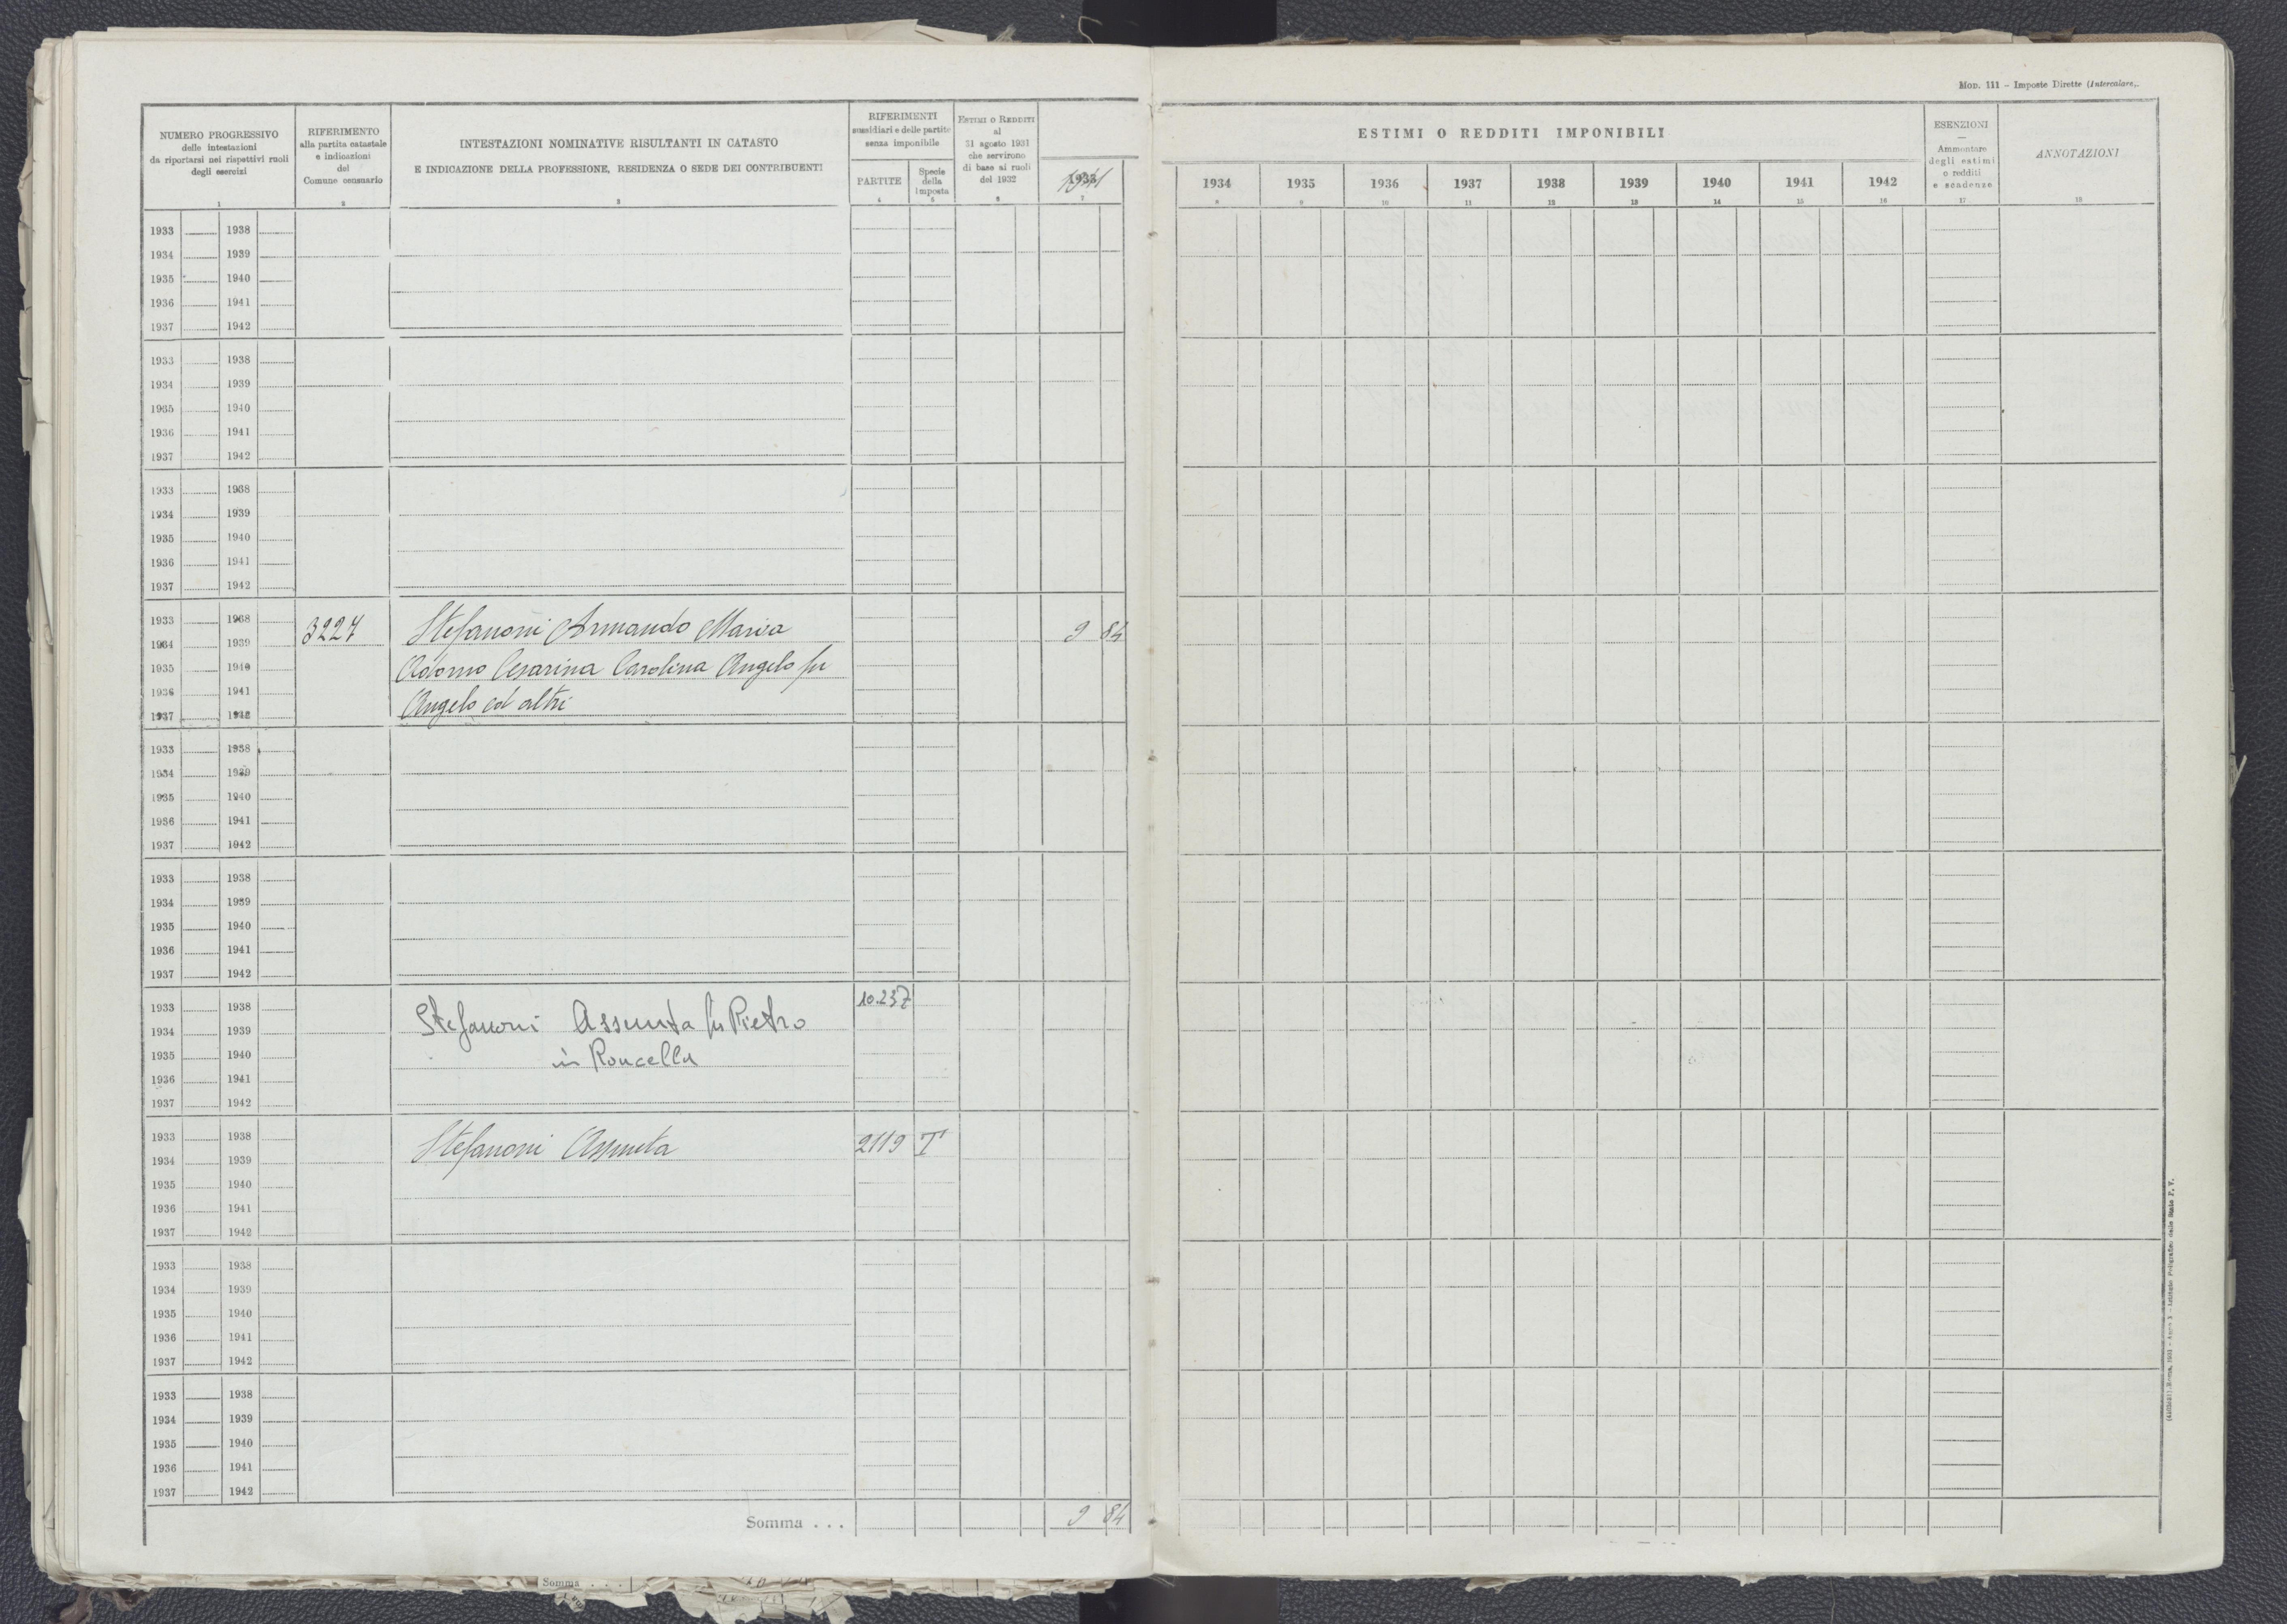 Mod. 111 – Imposte Dirette (Intercalare).
NUMERO PROGRESSIVO
delle intestazioni
da riportarsi nei rispettivi ruoli
degli esercizi
1
RIFERIMENTO
alla partita catastale
e indicazioni
del
Comune censuario
2
INTESTAZIONI NOMINATIVE RISULTANTI IN CATASTO
E INDICAZIONE DELLA PROFESSIONE, RESIDENZA O SEDE DEI CONTRIBUENTI
3
RIFERIMENTI
sussidiari e delle partite
senza imponibile
PARTITE
4
Specie
della
imposta
5
ESTIMI O REDDITI
al
31 agosto 1931
che servirono
di base ai ruoli
del 1932
6
1933
1941
7
ESTIMI O REDDITI IMPONIBILI
1934 1935 1936 1937 1938 1939 1940 1941 1942
8 9 10 11 12 13 14 15 16
ESENZIONI
—
Ammontare
degli estimi
o redditi
e scadenze
17
ANNOTAZIONI
18
1933 1938
1934 1939
1935 1940
1936 1941
1937 1942
1933 1938
1934 1939
1935 1940
1936 1941
1937 1942
1933 1938
1934 1939
1935 1940
1936 1941
1937 1942
1933 1938
1934 1939 3227 Stefanoni Armando Maria 9 84
1935 1940 Adorno Cesarina Carolina Angelo fu
1936 1941
1937 1942 Angelo ed altri
1933 1938
1934 1939
1935 1940
1936 1941
1937 1942
1933 1938
1934 1939
1935 1940
1936 1941
1937 1942
1933 1938 10.237
1934 1939 Stefanoni Assunta fu Pietro
1935 1940 in Roncella
1936 1941
1937 1942
1933 1938 Stefanoni Assunta 2119 T
1934 1939
1935 1940
1936 1941
1937 1942
1933 1938
1934 1939
1935 1940
1936 1941
1937 1942
1933 1938
1934 1939
1935 1940
1936 1941
1937 1942
Somma . . . 9 84
Somma . . .